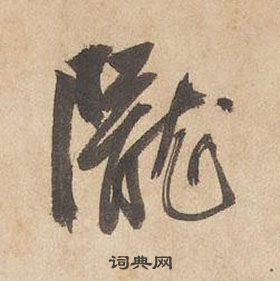 隴
词典网